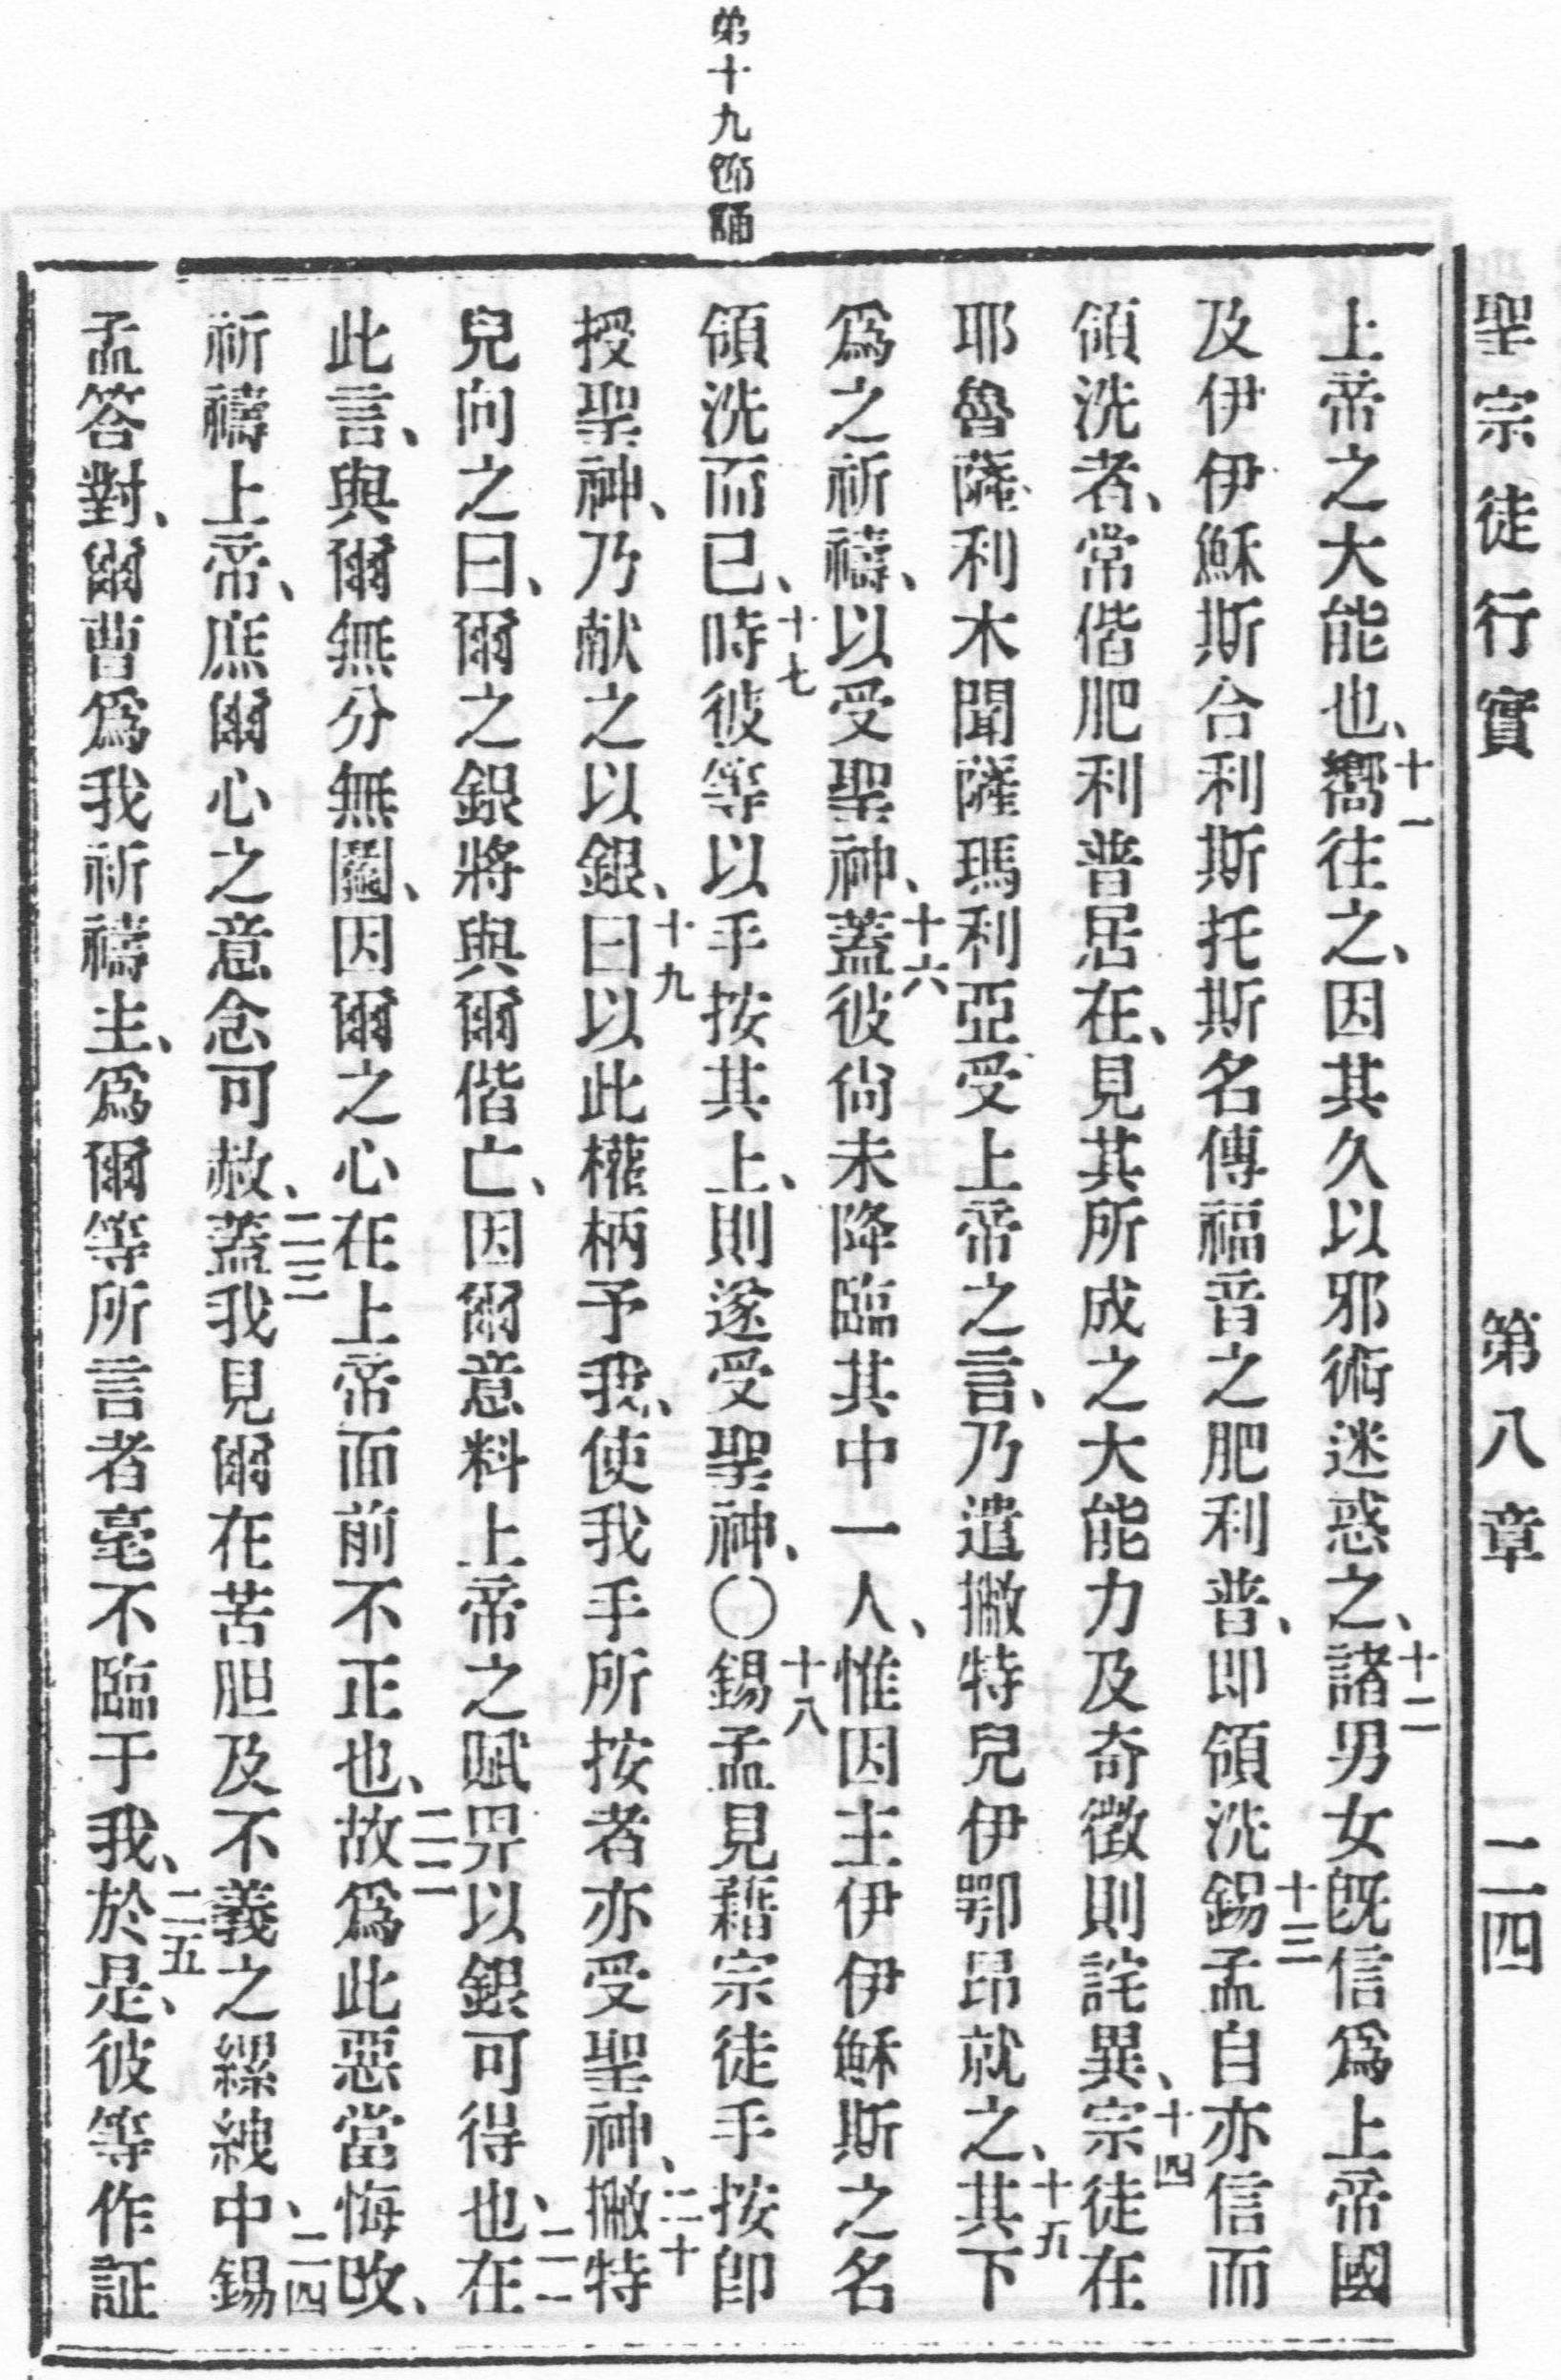 聖宗徒行實 第八章 二四
弟十九節誦
上帝之大能也、十一嚮往之、因其久以邪術迷惑之、十二諸男女旣信爲上帝國
及伊伊穌斯合利斯托斯名傳福音之肥利普、即領洗十三錫孟自亦信而
領洗者、常偕肥利普居在、見其所成之大能力及奇徵則詫異、十四宗徒在
耶魯薩利木聞薩瑪利亞受上帝之言、乃遣撇特兒伊鄂昂就之、十五其下
爲之祈禱、以受聖神、十六蓋彼尙未降臨其中一人、惟因主伊伊穌斯之名
領洗而已、十七時彼等以手按其上、則遂受聖神、〇十八錫孟見藉宗徒手按卽
授聖神、乃献之以銀、十九曰以此權柄予我、使我手所按者亦受聖神、二十撇特
兒向之曰、爾之銀將與爾偕亡、因爾意料上帝之賦畀以銀可得也、二一在
此言、與爾無分無鬮、因爾之心在上帝面前不正也、二二故爲此惡當悔改、
祈禱上帝、庶爾心之意念可赦、二三蓋我見爾在苦胆及不義之縲絏中、二四錫
孟答對、爾曹爲我祈禱主、爲爾等所言者毫不臨于我、二五於是、彼等作証